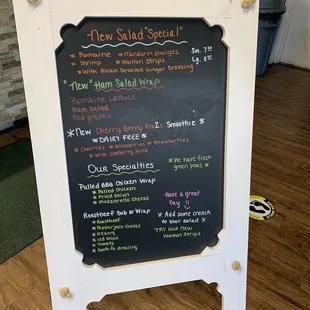 New Salad "Special"
* Romaine * Mandarin Oranges Sm. 7.00
* Shrimp * Wonton Strips Lg. 8.00
* With Asian Sesame Ginger Dressing
"New" Ham Salad Wrap
Romaine Lettuce
Ham Salad
Red grapes
*New Cherry Berry KraZe Smoothie *
* DAIRY FREE *
* Cherries * Blueberries * Strawberries
* With Cranberry Juice
Our Specialties
* We have fresh
green peas *
Pulled BBQ Chicken Wrap
* Pulled Chicken
* Fried Onion
* Mozzarella Cheese
Have a great
Day
Roastbeef Sub or Wrap
* Roastbeef
* Pepperjack Cheese
* Iceberg
* Red Onion
* Tomato
* Garlic Mayo
* Add some crunch
to your salad
TRY our new
Wonton Strips